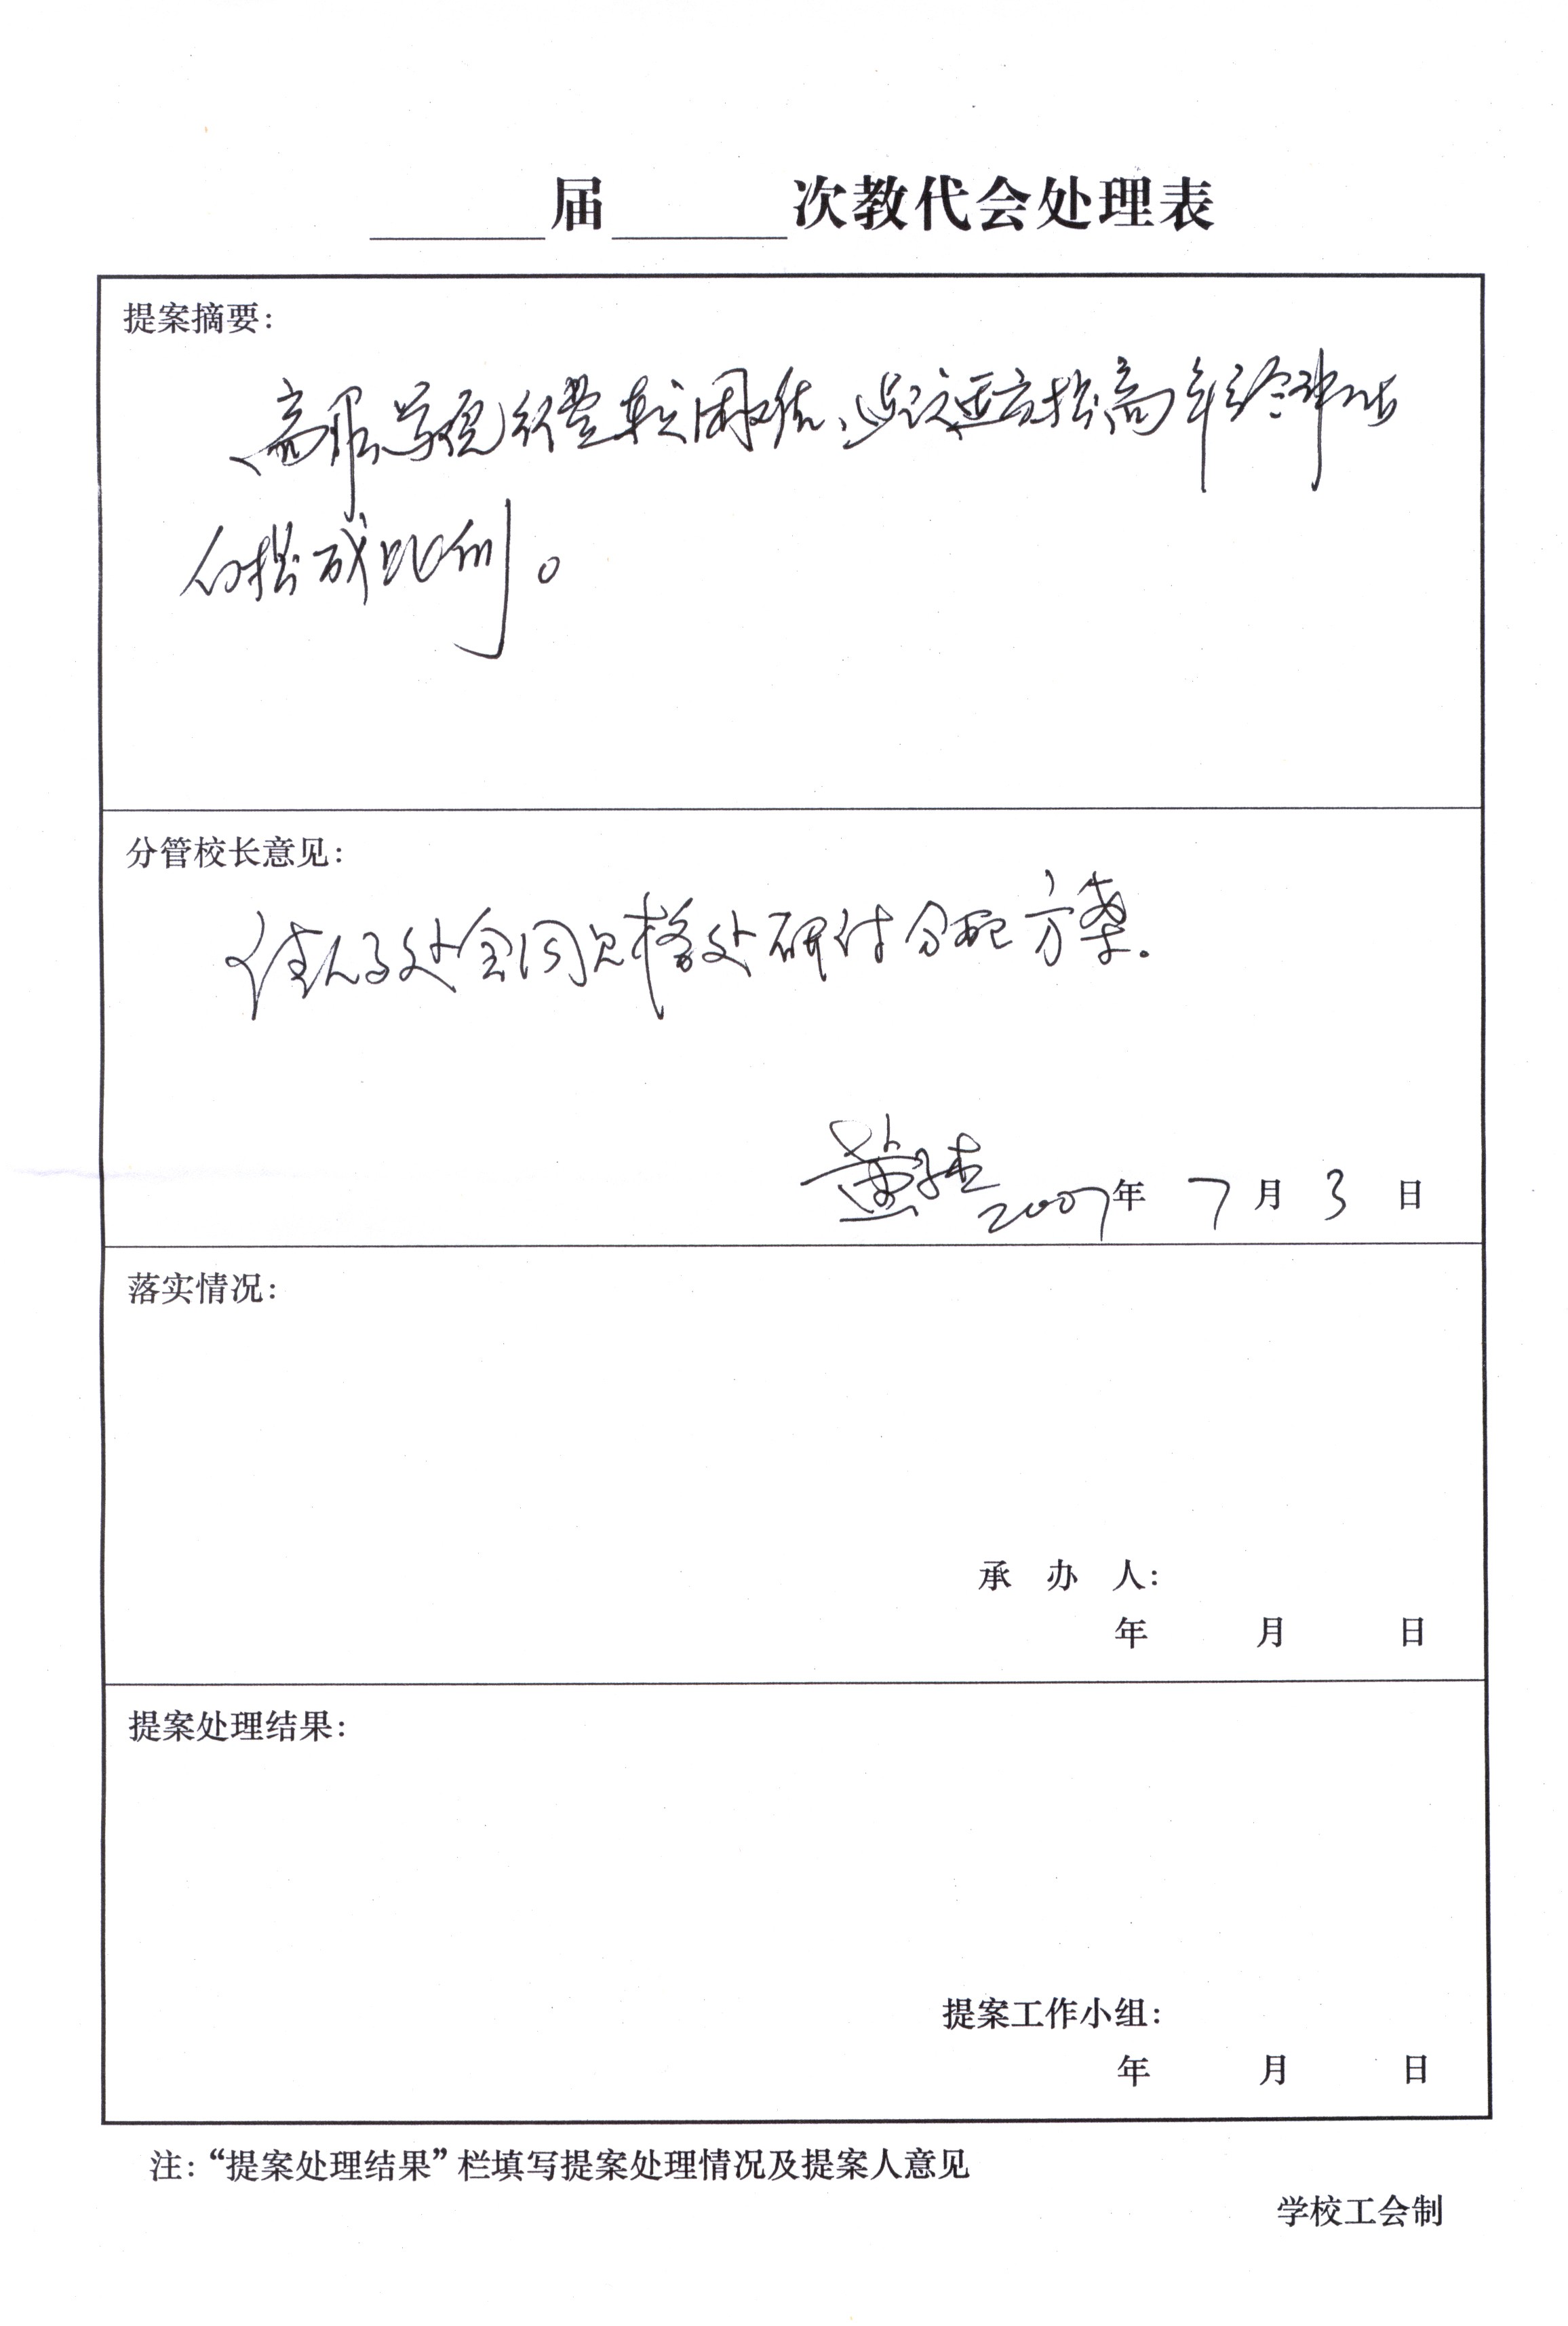 届 次教代会处理表
提案摘要：
高职学院经费较困难，建议适应提高年终津贴
的提成比例。
分管校长意见：
请人事处会同财务处研讨分配方案.
2007年 7 月 3 日
落实情况：
承 办 人：
年 月 日
提案处理结果：
提案工作小组：
年 月 日
注：“提案处理结果”栏填写提案处理情况及提案人意见
学校工会制